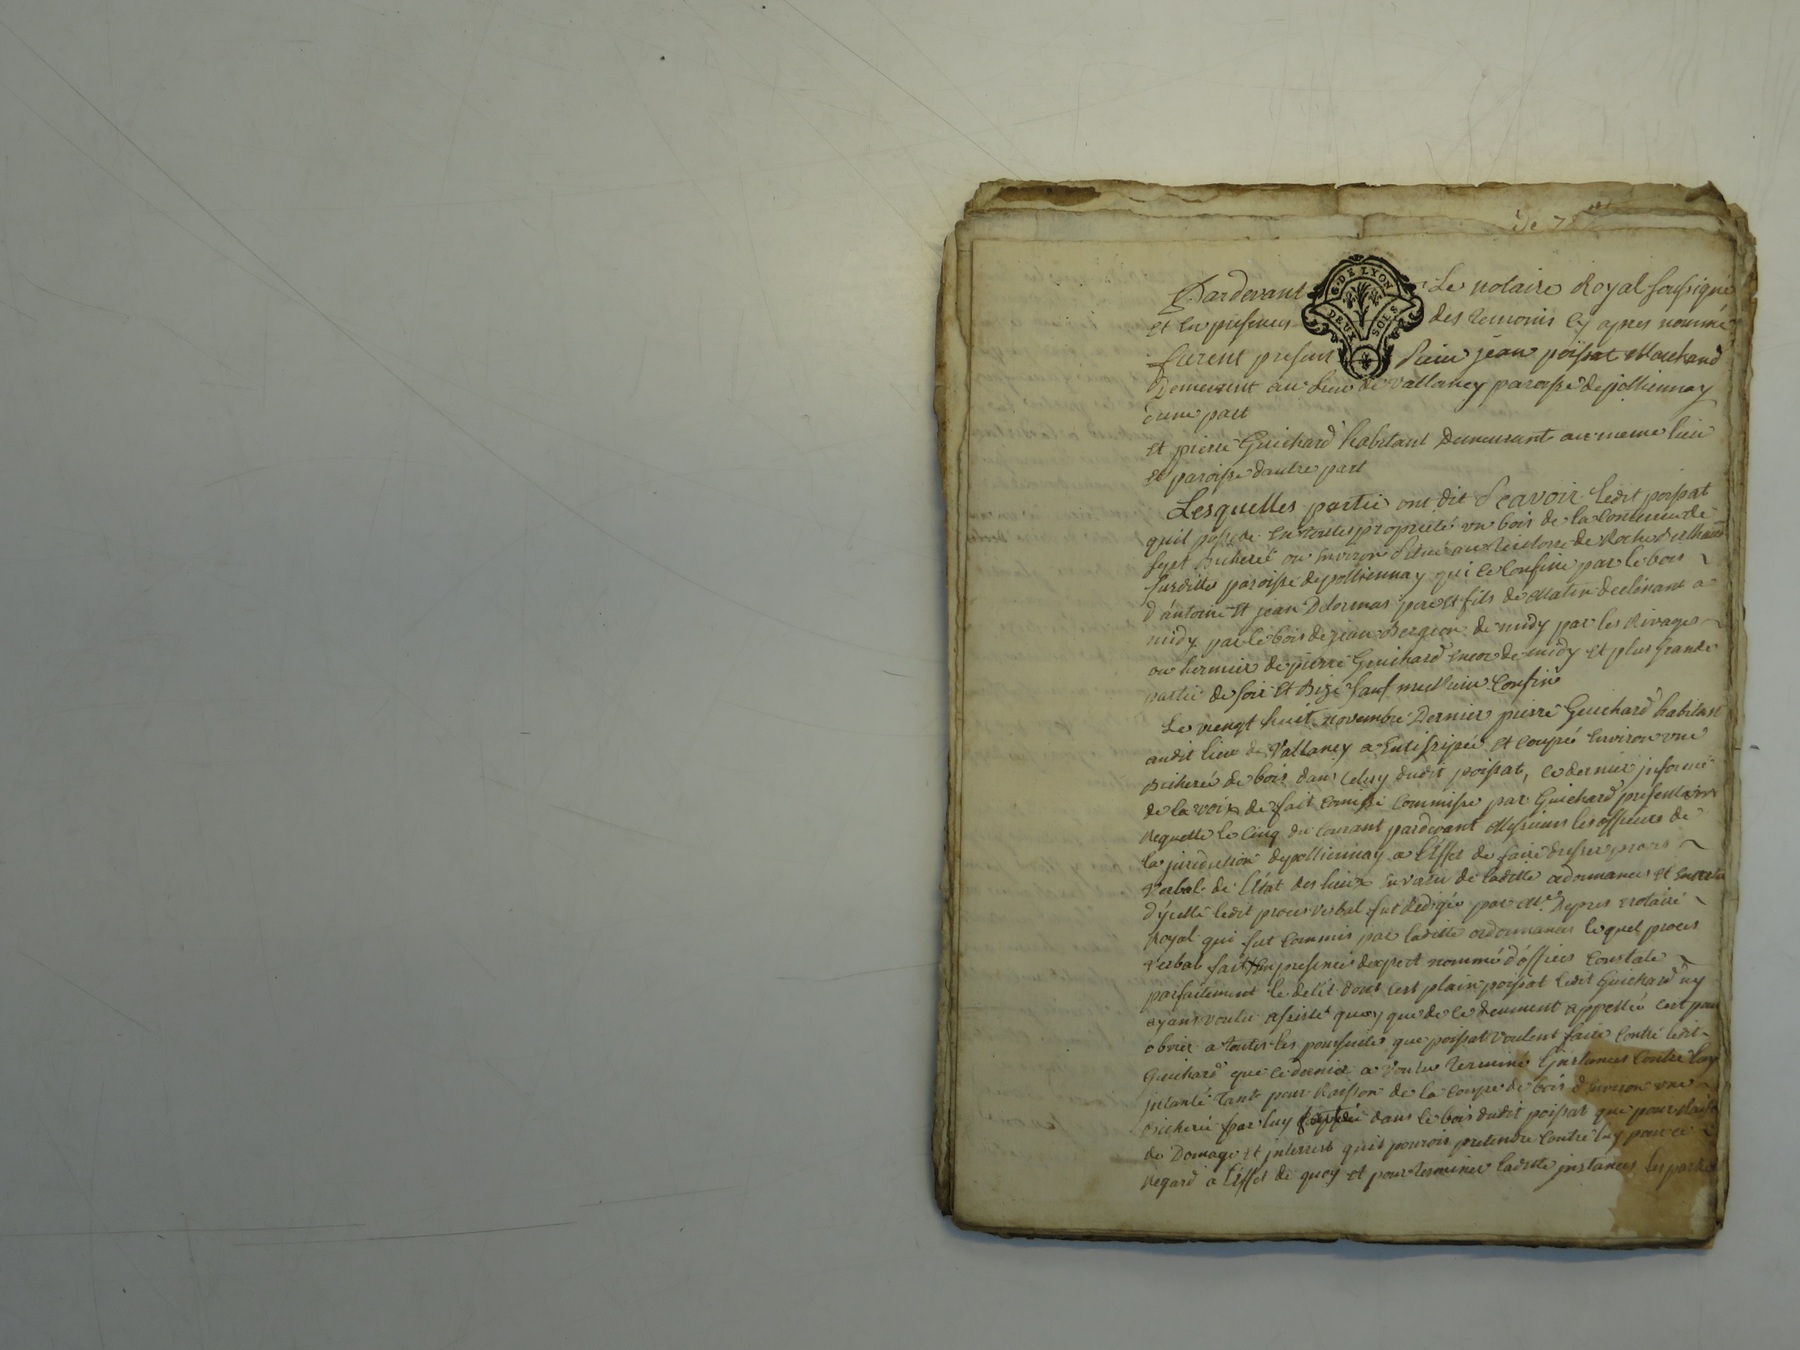 de 7
G. DE LYON
DEUX SOLS
Pardevant Le notaire Royal soussigné
et En presences des temoins Cy apres nommé
furent present Sieur jean poissat Marchand
Demeurant au Lieu de vallancy paroisse de pollionnay
dune part
et pierre Guichard habitant Demeurant au meme lieu
et paroisse dautre part
Lesquelles partie ont dit Scavoir ledit poissat
quil possede En toutte proprieté un bois de la Contenue de
sept Bicheré ou Environ Situé au territoire de Roche
susditte paroisse de pollionnay qui ce Confine par le bois
d'antoine et jean Delormas pere et fils de Matin declinant a
midy par le bois de jean Bergeon de midy par les Rivages
ou hermie de pierre Guichard encor de midy et plus grande
partie de soir et Bize sauf meilleur Confin
Le vingt huit novembre Dernier pierre Guichard habitant
audit lieu de Vallancy a Anticipée et Coupée Environ une
Bicheré de bois dans Celuy dudit poissat, ce dernier informé
de la voix de fait Commisse par Guichard presenta
Requette le Cinq du Courant pardevant Messieurs les officiers de
la juridiction de pollionnay a l'Effet de faire dresser proces
Verbal de l'Etat des lieux En vertu de laditte ordonnances et
d'ycelle ledit proces Verbal fut Redigée par Me Depres notaire
Royal qui fut Commis par laditte ordonnances lequel proces
Verbal fait En presences dexpert nommé d'offices Constate
parfaitement le delit dont cest plain poissat ledit Guichard ny
ayans voulu assisté quoy que de ce deument appellée cest pour
obvier a toutes les poursuites que poissat vouloit faire Contre ledit
Guichard que ce dernier a voulu terminé l'instances Contre luy
intanté tant pour Raison de la Coupe de bois d'Environ une
Bicherée par luy dans le bois dudit poissat que pour Raison
de Domage et interrest quil pouroit pretendre Contre luy pour ce
Regard a l'Effet de quoy et pour terminer laditte instances les parties